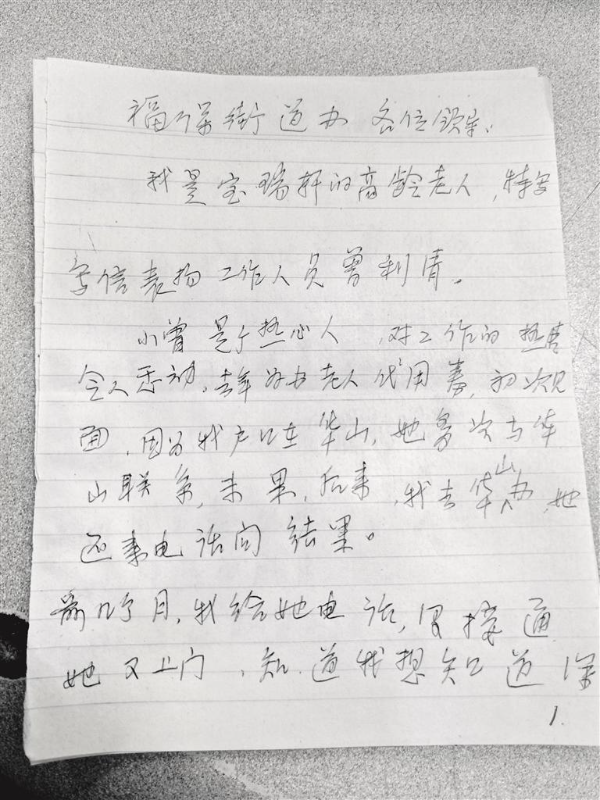 福保街道办 各位领导:
我是宝瑞轩的高龄老人,特
写信表扬工作人员曾利青。
小曾是个热心人,对工作的热情
令人感动,去年为办老人优用,初次见
面,因为我户口在华山,她多次与华
山联系,未果,后来,我去华山办,她
还来电话问结果。
前几个月,我给她电话,接通
她又上门,知道我想知道深
1.